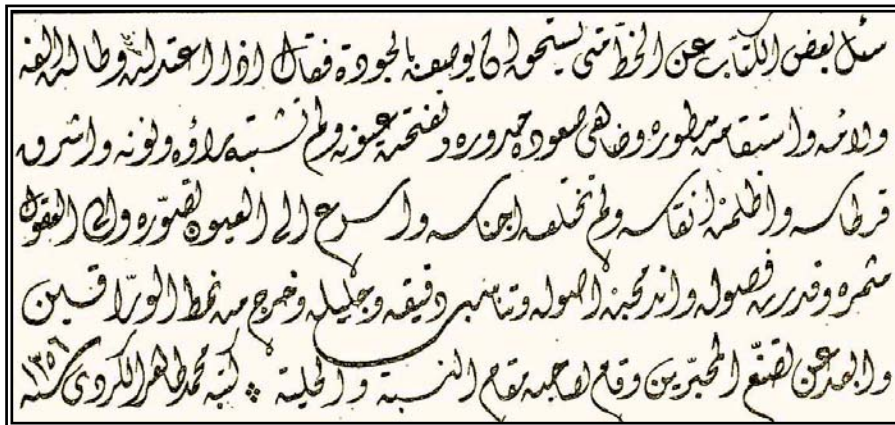 سئل بعض الكتاب عن الخط متى يستحق ان يوصف بالجودة فقال اذا اعتدلت اقسامه وطالت الفه
ولامه واستقامت سطوره وضاهى صعوده حدوره وتفتحت عيونه ولم تشتبه راؤه ونونه واشرق
قرطاسه واظلمت انقاسه ولم تختلف اجناسه واسرع الى العيون تصوره والى العقول
مثمره وقدرت فصوله واندمجت اصوله وتناسب دقيقه وجليله وخرج من نمط الوراقين
وابعد عن تصنع المحبرين وقام لصاحبه مقام النسبة والحلية كتبه محمد طاهر الكردى سنه ١٣٥٦